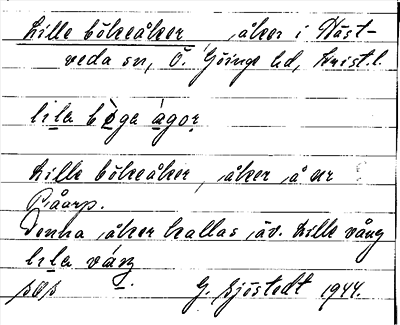 Lille bökeåker, åker i Häst-
veda sn, Ö. Göinge hd, Krist.l.
lila bø̀ga ágor
Lille bökeåker, åker å nr
Denna åker kallas äv. Lille vång
lila váng
G. Sjöstedt 1944.